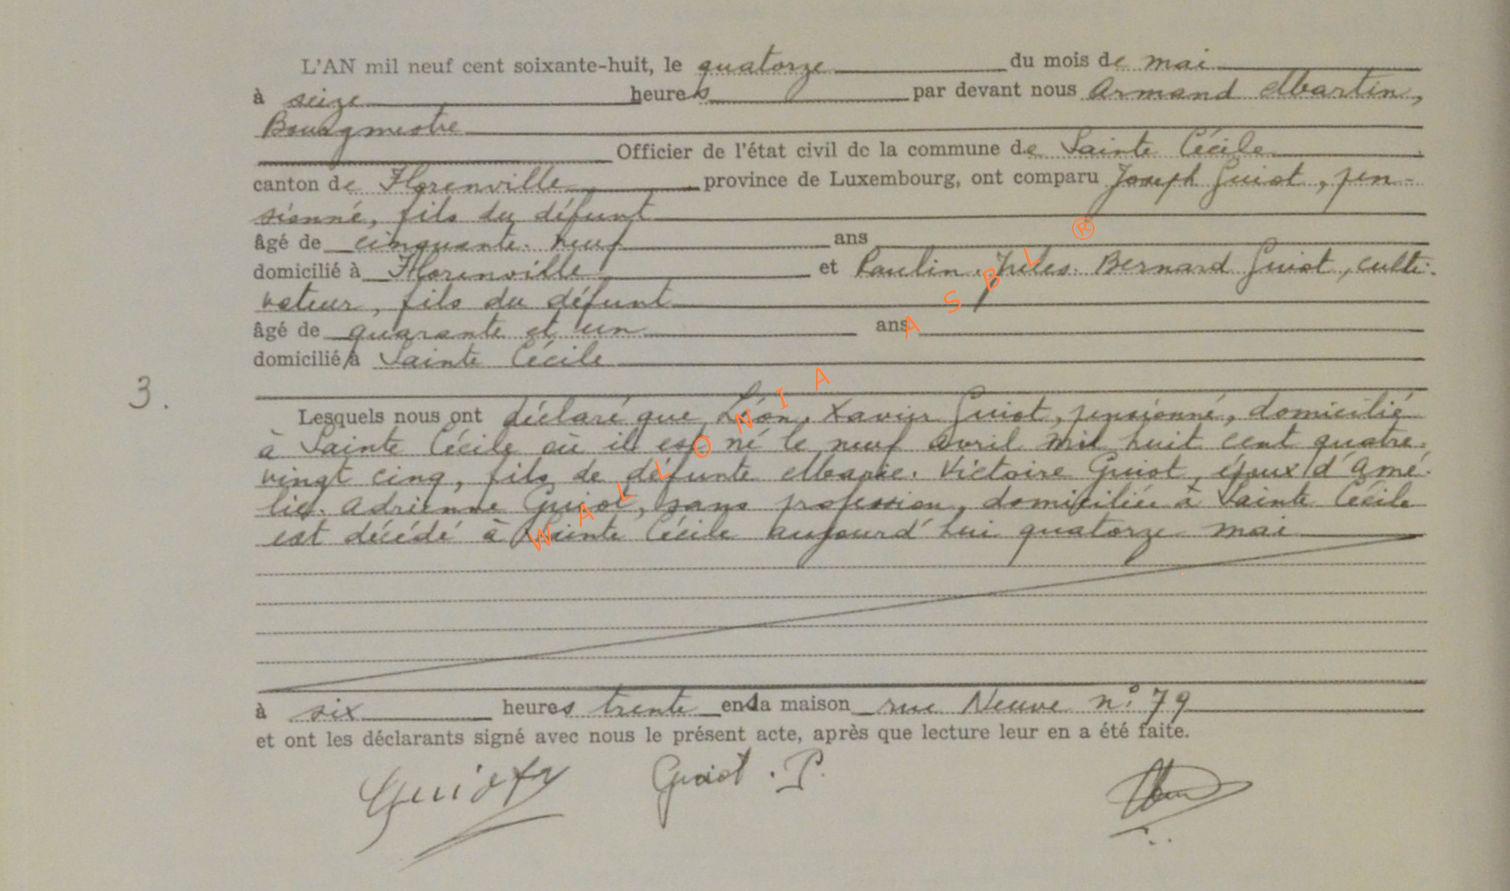 L'AN mil neuf cent soixante-huit, le quatorze du mois de mai
à seize heures par devant nous Armand Martin,
Bourgmestre
Officier de l'état civil de la commune de Sainte Cécile
canton de Florenville province de Luxembourg, ont comparu Joseph Guiot, pen-
sionné, fils du défunt
âgé de cinquante-neuf ans
domicilié à Florenville et Paulin-Jules-Bernard Guiot, culti-
vateur, fils du défunt
âgé de quarante et un ans
domicilié à Sainte Cécile
3.
Lesquels nous ont déclaré que Léon-Xavier Guiot, pensionné, domicilié
à Sainte Cécile où il est né le neuf avril mil huit cent quatre-
vingt cinq, fils de défunte Marie-Victoire Guiot, époux d'Amé-
lie-Adrienne Guiot, sans profession, domiciliée à Sainte Cécile
est décédé à Sainte Cécile aujourd'hui quatorze mai
à six heures trente en la maison rue Neuve n° 79
et ont les déclarants signé avec nous le présent acte, après que lecture leur en a été faite.
Guiot J Guiot. P.
WALLONIA ASBL ®